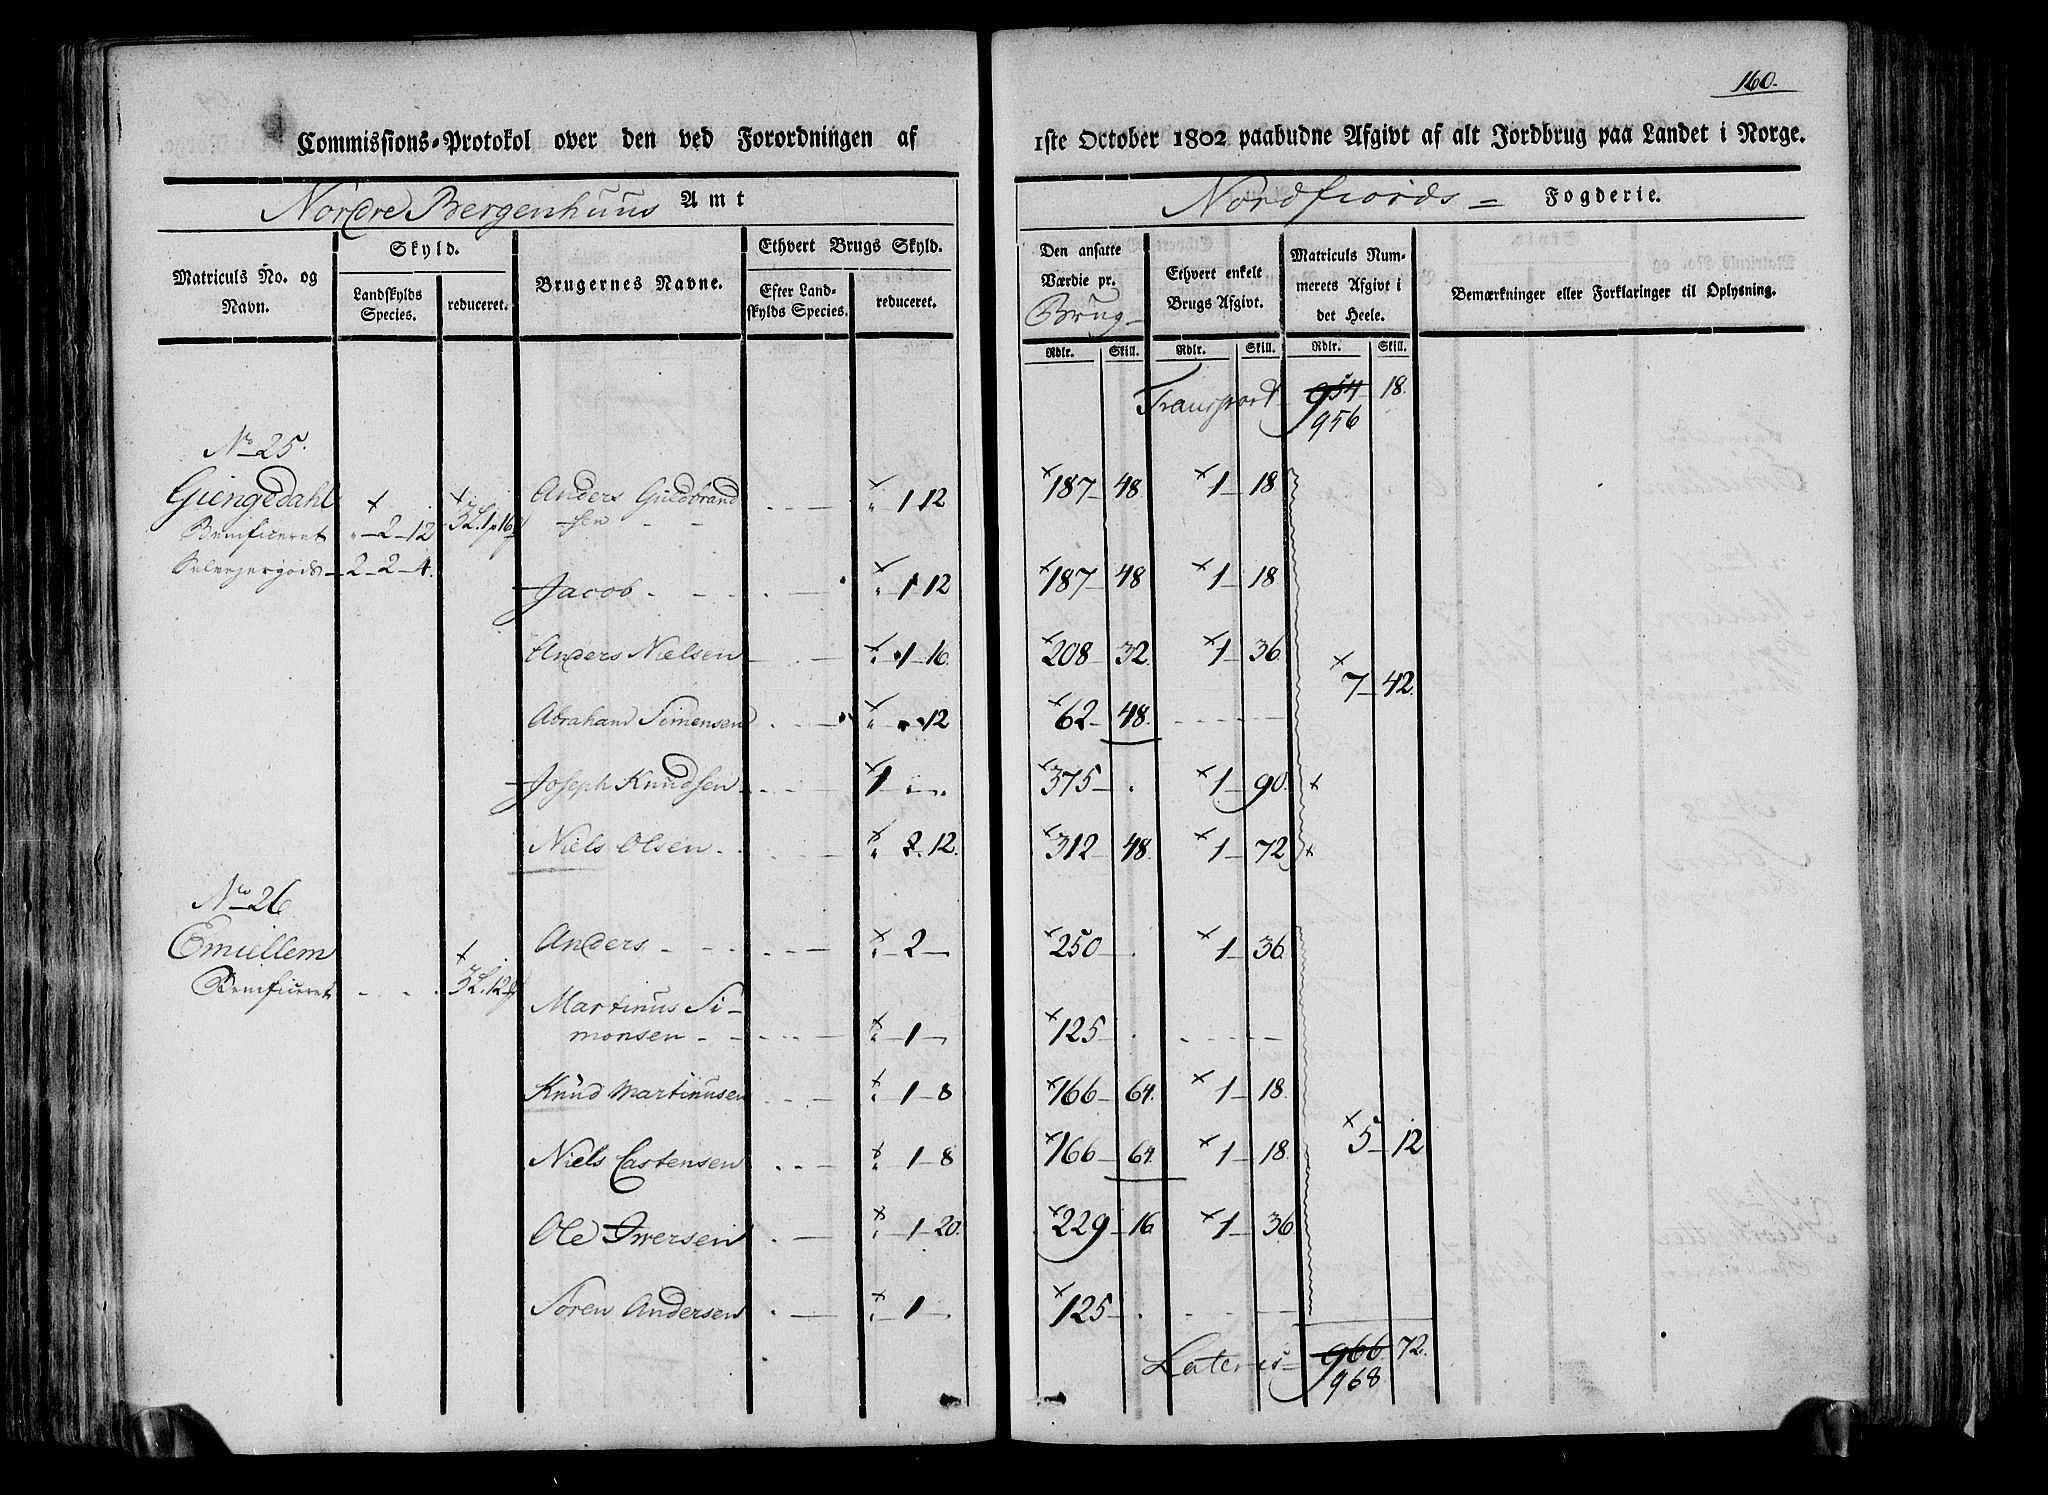 160.
Commissions-Protokol over den ved Forordningen af 1ste October 1802 paabudne Afgivt af alt Jordbrug paa Landet i Norge.
Nordre Bergenhuus Amt
Nordfiords = Fogderie.
Matriculs No. og Navn.
Skyld.
Landskylds Species.
reduceret.
Brugernes Navne.
Ethvert Brugs Skyld.
Efter Landskylds Species.
reduceret.
Den ansatte Værdie pr. Brug
Ethvert enkelt Brugs Afgivt.
Matriculs Nummerets Afgivt i det Heele.
Bemærkninger eller Forklaringer til Oplysning.
Rdlr. Skill. Rdlr. Skill. Rdlr. Skill.
Transport 954 18.
956
No 25.
Giengedahl
Benificeret " - 2 - 12
Selvejergods - 2 - 2 - 4.
Anders Guldbrand
sen - - " 1 12 187 - 48 1 - 18
Jacob - " 1 12 187 - 48 1 - 18
Anders Nielsen " 1 - 16. 208 - 32. 1 - 36
7 - 42.
Abraham Simensen " " 12 62 - 48.
Joseph Knudsen 1 375 - . 1 - 90.
Niels Olsen " 2. 12. 312 - 48. 1 - 72
No 26
Emiellem
Benificeret
Anders " 2 - 250 - . 1 - 36
Martinus Si-
monsen " 1 - 125 - .
Knud Martinusen " 1 - 8 166 - 64. 1 - 18.
Niels Castensen " 1 - 8 166 - 64. 1 - 18.
5 - 12
Ole Iwersen " 1 - 20. 229 - 16. 1 - 36
Søren Andersen " 1 - 125 - .
Lateris = 966 72.
968